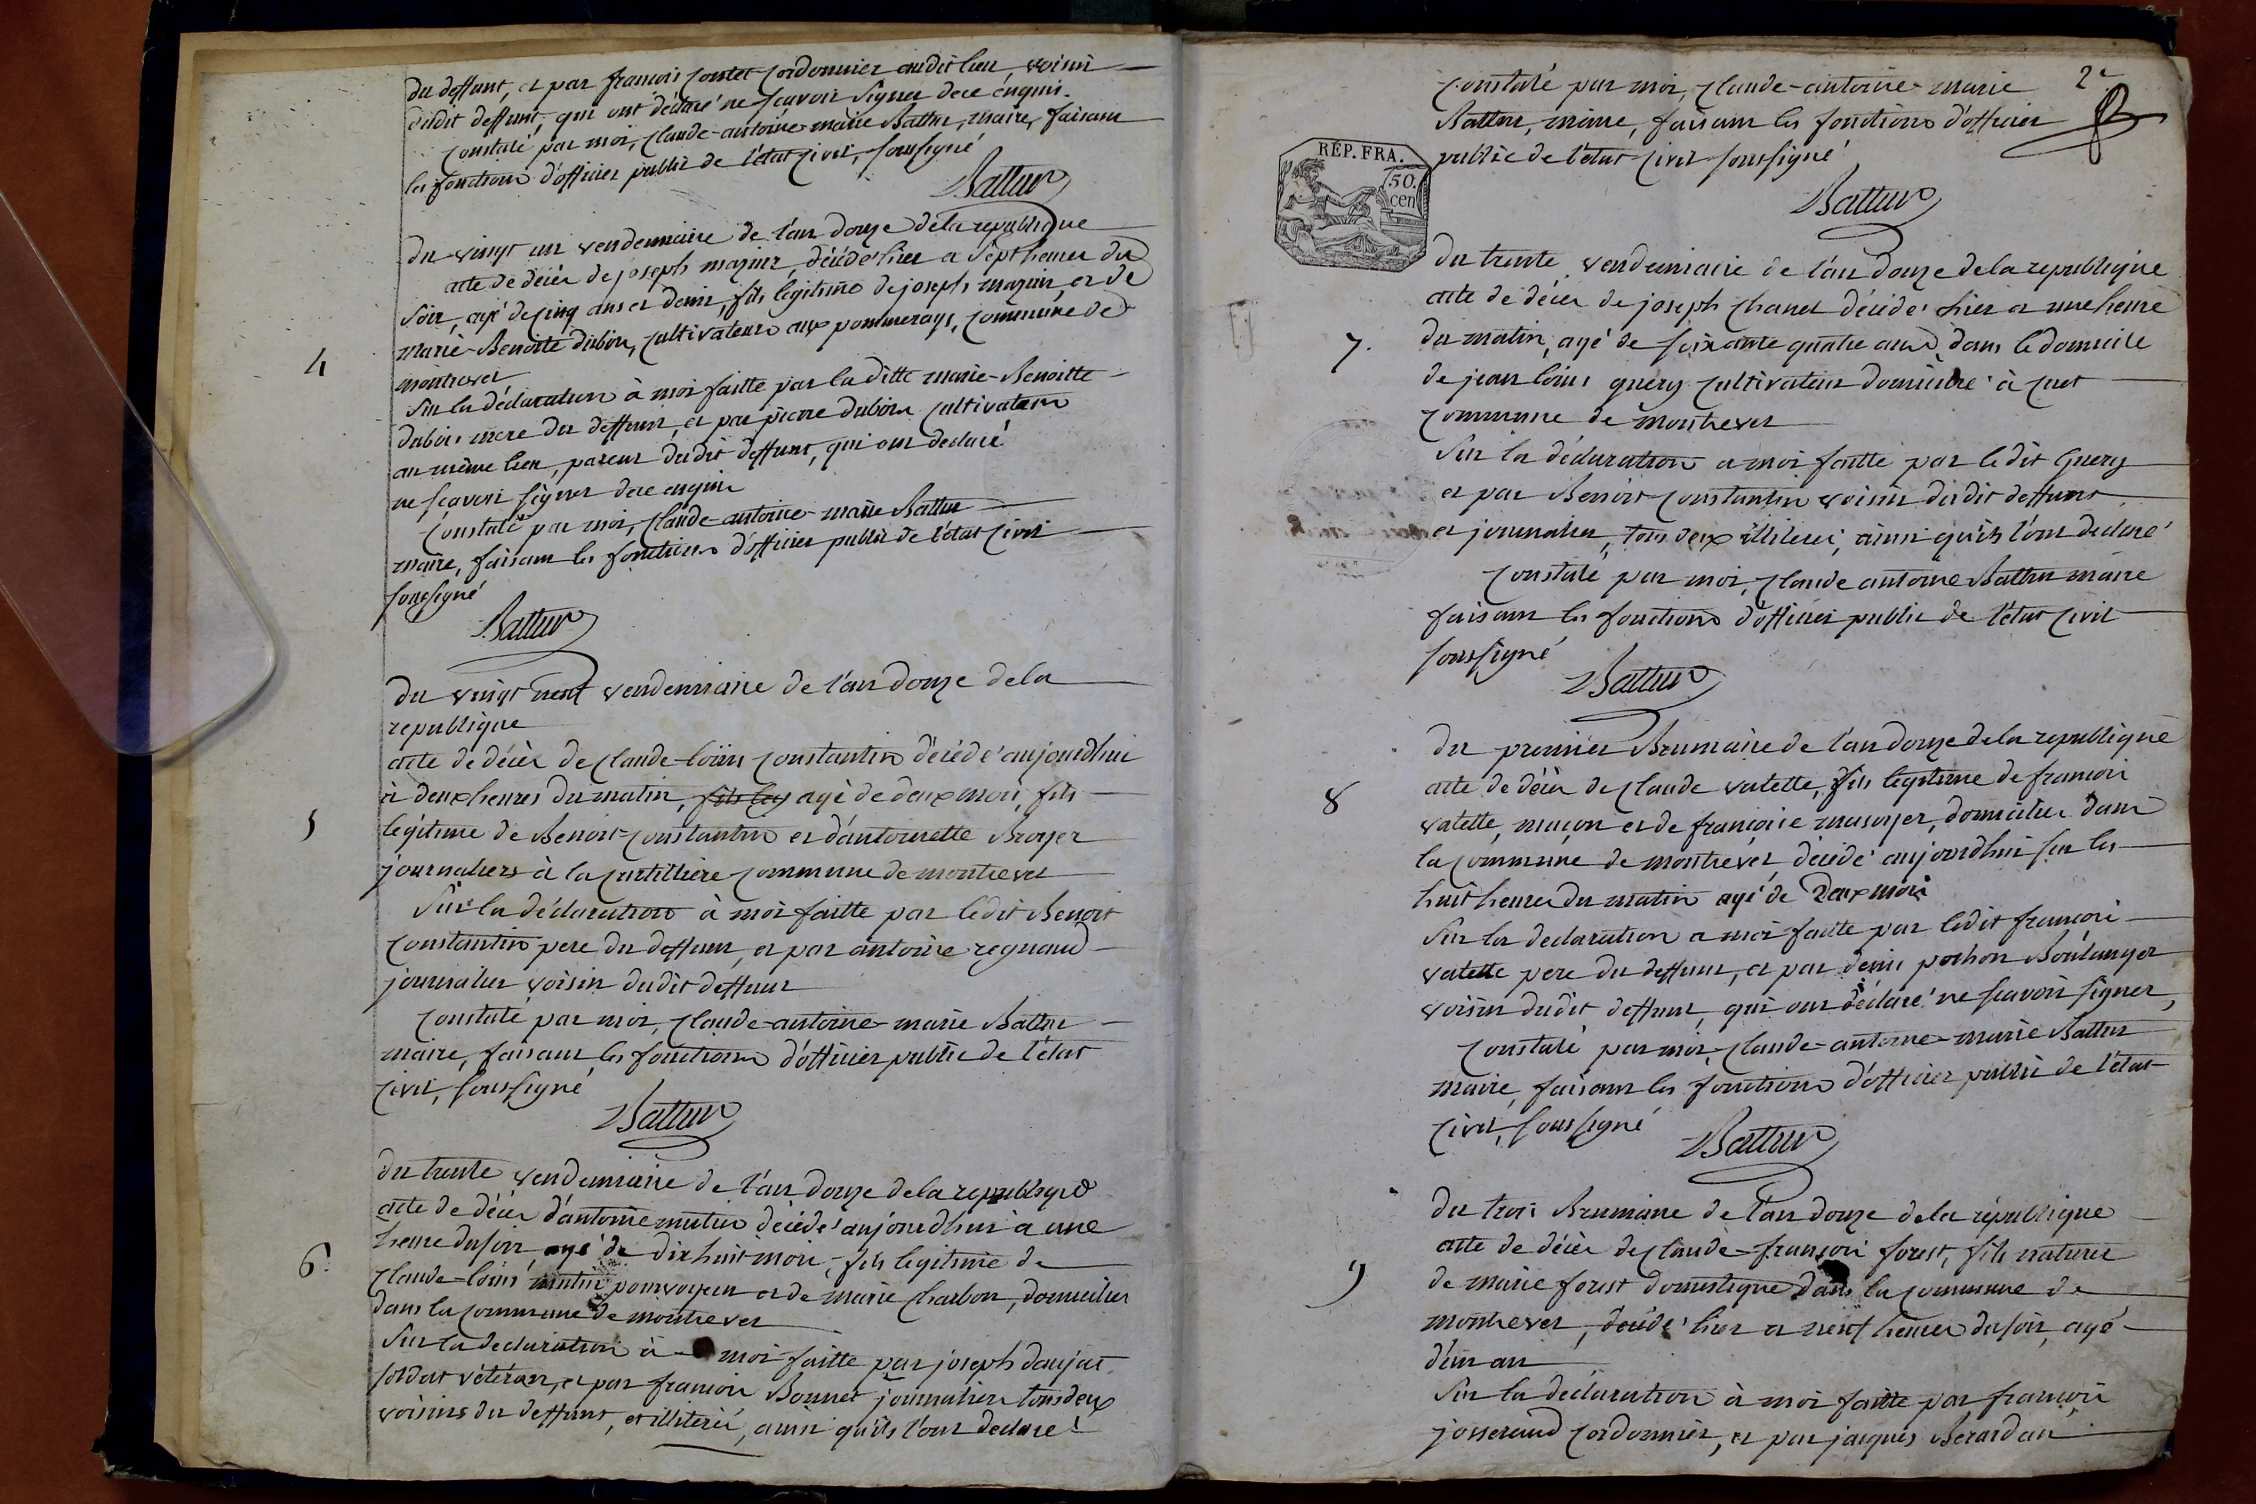 du deffunt, et par françois contet cordonnier audit lieu, voisin
dudit deffunt, qui ont déclaré ne scavoir signer de ce enquis.
constaté par moi, claude-antoine-marie Battur, maire, faisant
les fonctions d'officier public de l'état civil, soussigné
Battur
du vingt un vendemiaire de l'an douze de la republique
acte de décès de joseph mazuir, décédé hier a sept heures du
soir, agé de cinq ans et demi, fils legitime de joseph mazuir, et de
4
marie-Benoitte dubois, cultivateurs aux pommerays, commune de
montrevel
sur la déclaration à moi faitte par la ditte marie-Benoitte
dubois mere du deffunt, et par pierre dubois cultivateur
au même lieu, parent dudit deffunt, qui ont declaré
ne scavoir signer de ce enquis
constaté par moi, claude-antoine-marie Battur
maire, faisant les fonctions d'officier public de l'état civil
soussigné
Battur
du vingt neuf vendemiaire de l'an douze de la
republique
acte de décès de claude-louis constantin décédé aujourdhui
à deux heures du matin, fils leg agé de deux mois, fils
5
legitime de Benoit-constantin et d'antoinette Broyer
journaliers à la curtilliere commune de montrevel
sur la déclaration à moi faitte par ledit Benoit
constantin pere du deffunt, et par antoine regnaud
journalier voisin dudit deffunt
constaté par moi, claude-antoine-marie Battur
maire, faisant les fonctions d'officier public de l'état
civil, soussigné
Battur
du trente vendemiaire de l'an douze de la republique
acte de décès d'antoine mutin décédé aujourdhui à une
heure du soir, agé de dix huit mois, fils legitime de
6.
claude-louis mutin pourvoyeur et de marie charbon, domiciliés
dans la commune de montrevel
sur la declaration à moi faitte par joseph daujat
soldat vétéran, et par francois Bonnet journalier tous deux
voisins du deffunt, et illiteré, ainsi qu'ils l'ont declaré
2e
constaté par moi, claude-antoine-marie
Battur, maire, faisant les fonctions d'officier
public de l'état-civil soussigné
RÉP. FRA.
50.
cen
Battur
du trente vendemiaire de l'an douze de la republique
acte de décès de joseph chanel décédé hier a une heure
7.
du matin, agé de soixante quatre ans, dans le domicile
de jean louis guery cultivateur domicilié à cuet
commune de montrevel
sur la déclaration a moi faitte par ledit Guery
et par Benoit-constantin voisin dudit deffunt
et journalier, tous deux illiteré, ainsi qu'ils l'ont declaré
constaté par moi, claude antoine Battur maire
faisant les fonctions d'officier public de l'état civil
soussigné
Battur
du premier Brumaire de l'an douze de la republique
acte de décès de claude valette, fils legitime de francois
8
valette, maçon et de françoise masoyer, domiciliés dans
la commune de montrevel décédé aujourdhui sur les
huit heures du matin agé de deux mois
sur la declaration a moi faitte par ledit francois
valette pere du deffunt, et par denis pochon Boulanger
voisin dudit deffunt, qui ont déclaré ne scavoir signer,
constaté par moi, claude-antoine-marie Battur
maire, faisant les fonctions d'officier public de l'état
civil, soussigné
Battur
du trois Brumaire de l'an douze de la république
acte de décès de claude-françois forest, fils naturel
9
de marie forest domestique dans la commune de
montrevel, décédé hier a neuf heures du soir, agé
d'un an
sur la déclaration à moi faitte par françois
josserand cordonnier, et par jacques Berardan